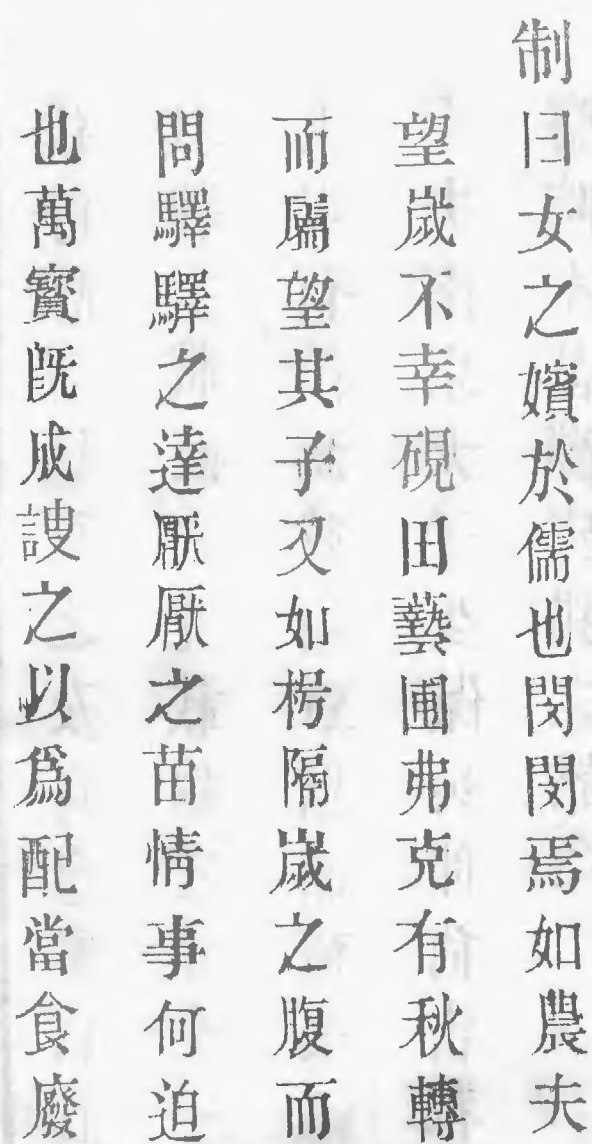 制曰女之嬪於儒也閔閔焉如農夫
望歲不幸硯田藝圃弗克有秋轉
而屬望其子又如枵隔歲之腹而
問驛驛之達厭厭之苗情事何迫
也萬寶既成謏之以爲配當食廢